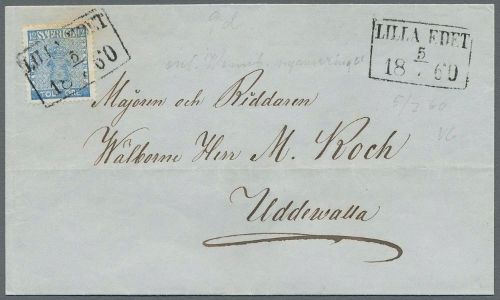 12 SVERIGE 12
TOLV ÖRE
LILLA EDET
5
18 60
LILLA EDET
5
18 60
9 d
5/3 60
Majoren och Riddaren
Wälborne Herr M. Koch
Uddewalla